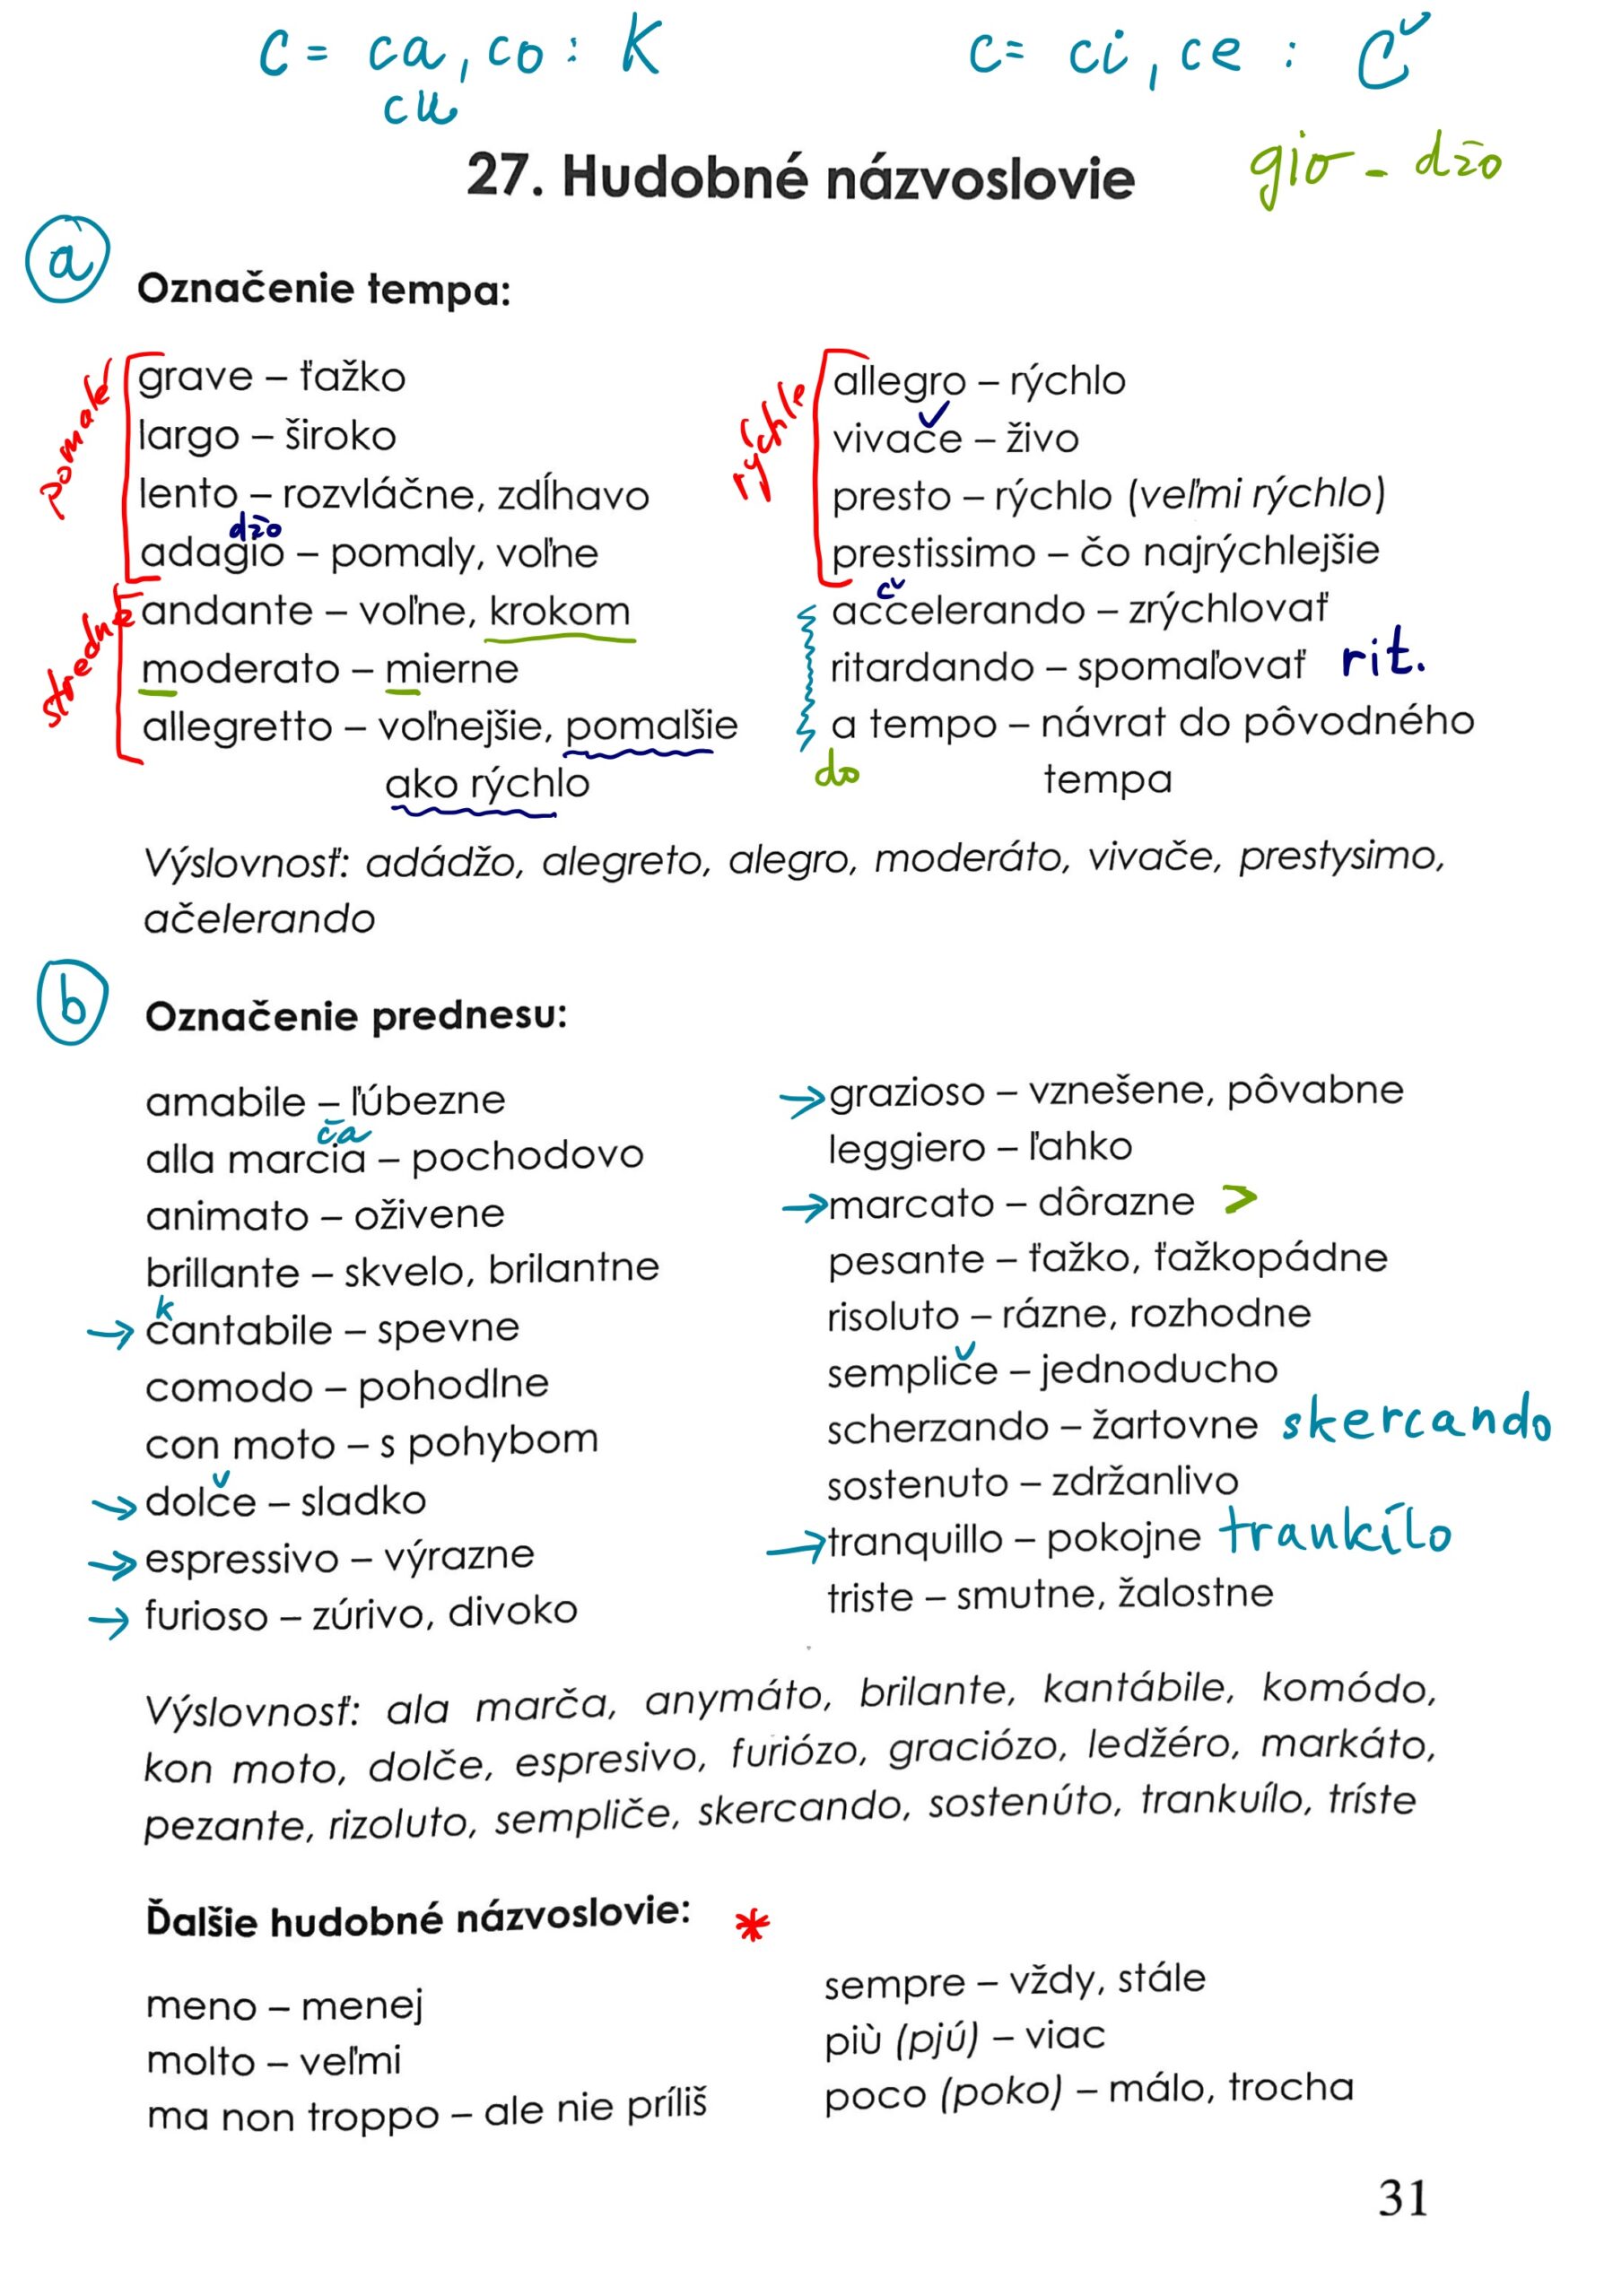 c = ca, co : K
cu
c = ci, ce : Č
27. Hudobné názvoslovie
gio - džo
a
Označenie tempa:
pomalé
grave – ťažko
largo – široko
lento – rozvláčne, zdĺhavo
džo
adagio – pomaly, voľne
stredné
andante – voľne, krokom
moderato – mierne
allegretto – voľnejšie, pomalšie
ako rýchlo
rýchle
allegro – rýchlo
vivače – živo
presto – rýchlo (veľmi rýchlo)
prestissimo – čo najrýchlejšie
č
accelerando – zrýchlovať
ritardando – spomaľovať rit.
a tempo – návrat do pôvodného
do
tempa
Výslovnosť: adádžo, alegreto, alegro, moderáto, vivače, prestysimo,
ačelerando
b
Označenie prednesu:
amabile – ľúbezne
ča
alla marcia – pochodovo
animato – oživene
brillante – skvelo, brilantne
k
→ cantabile – spevne
comodo – pohodlne
con moto – s pohybom
→ dolče – sladko
→ espressivo – výrazne
→ furioso – zúrivo, divoko
→ grazioso – vznešene, pôvabne
leggiero – ľahko
→ marcato – dôrazne >
pesante – ťažko, ťažkopádne
risoluto – rázne, rozhodne
sempliče – jednoducho
scherzando – žartovne skercando
sostenuto – zdržanlivo
→ tranquillo – pokojne trankílo
triste – smutne, žalostne
Výslovnosť: ala marča, anymáto, brilante, kantábile, komódo,
kon moto, dolče, espresivo, furiózo, graciózo, ledžéro, markáto,
pezante, rizoluto, sempliče, skercando, sostenúto, trankuílo, tríste
Ďalšie hudobné názvoslovie: *
meno – menej
molto – veľmi
ma non troppo – ale nie príliš
sempre – vždy, stále
più (pjú) – viac
poco (poko) – málo, trocha
31